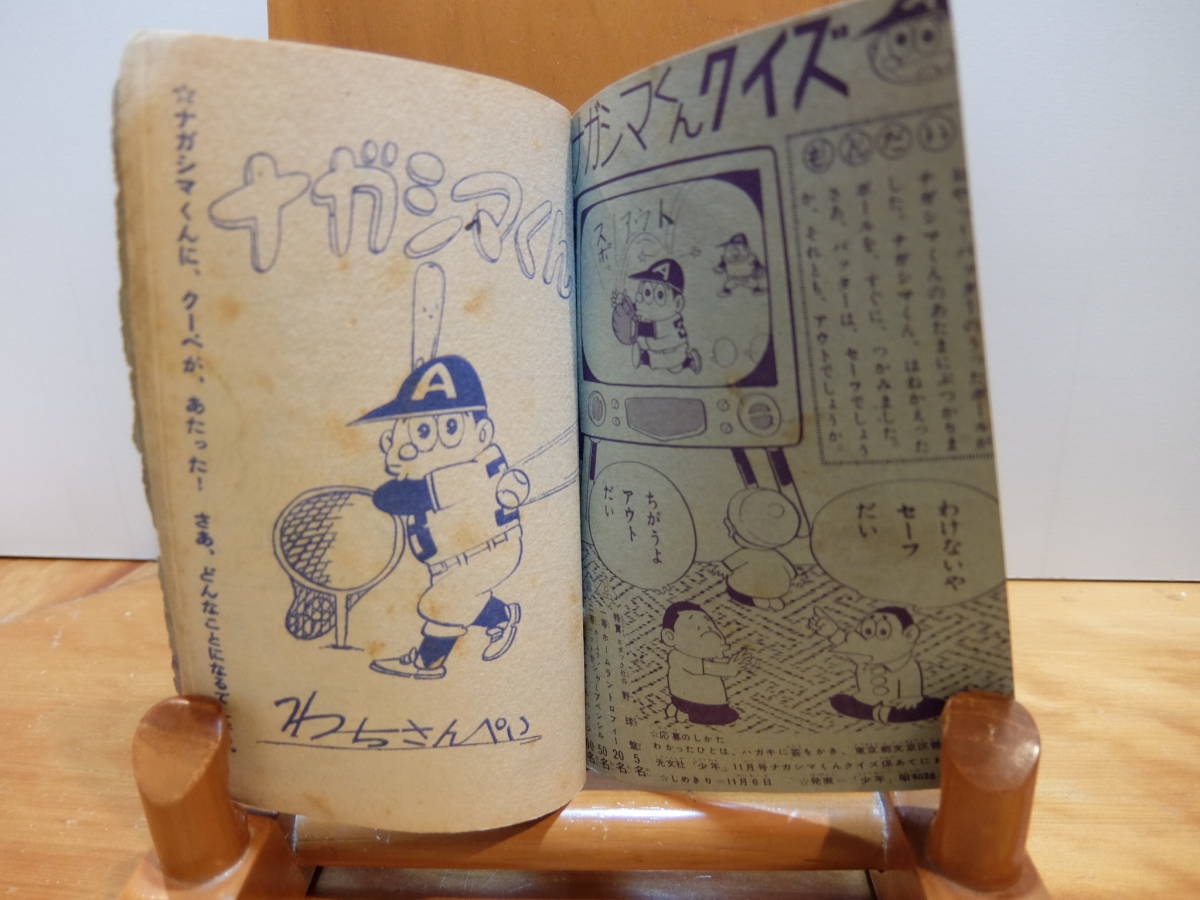 ☆ナガシマくんに、クーペが、あたった！ さあ、どんなことになる
ナガシマくん
A
わちさんぺい
ナガシマくんクイズ
もんだい
ナガシマくんのあたまにぶつかりま
した。ナガシマくん、はねかえった
ボールを、すぐに、つかみました。
さあ、バッターは、セーフでしょう
か、それとも、アウトでしょうか。
アウト
A
わけないや
セーフ
だい
ちがうよ
アウト
だい
☆応募のしかた
わかったひとは、ハガキに答をかき、東京都文京区
光文社「少年」11月号ナガシマくんクイズ係あてに
☆しめきり―11月6日
☆発表―「少年」昭和